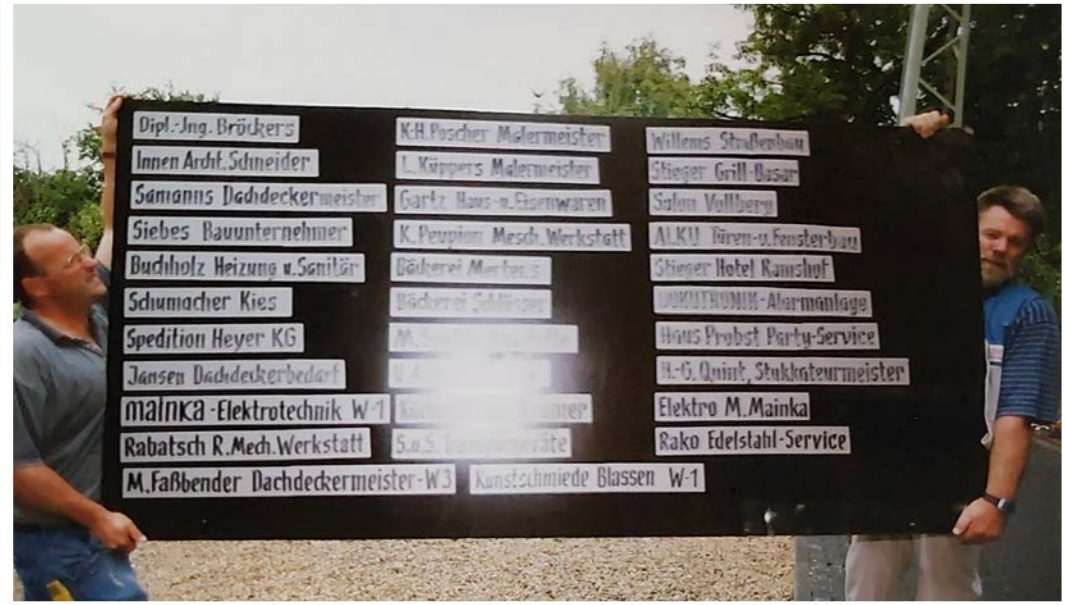 Dipl.-Jng. Bröckers
Innen Archt. Schneider
Samanns Dachdeckermeister
Siebes Bauunternehmer
Buchholz Heizung u. Sanitär
Schumacher Kies
Spedition Heyer KG
Jansen Dachdeckerbedarf
mainka-Elektrotechnik W-1
Rabatsch R. Mech. Werkstatt
M. Faßbender Dachdeckermeister-W3
K-H. Poscher Malermeister
L. Küppers Malermeister
Gartz Haus-u. Eisenwaren
K. Peupion Mech. Werkstatt
Bäckerei Mertens
Bäckerei Schlösser
M.
S.u.S
Kunstschmiede Blassen W-1
Willems Straßenbau
Stieger Grill-Basar
Salon Vollberg
ALKU Türen-u. Fensterbau
Stieger Hotel Ramshof
-Alarmanlage
Haus Probst Party-Service
H.-G. Quint, Stukkateurmeister
Elektro M. Mainka
Rako Edelstahl-Service